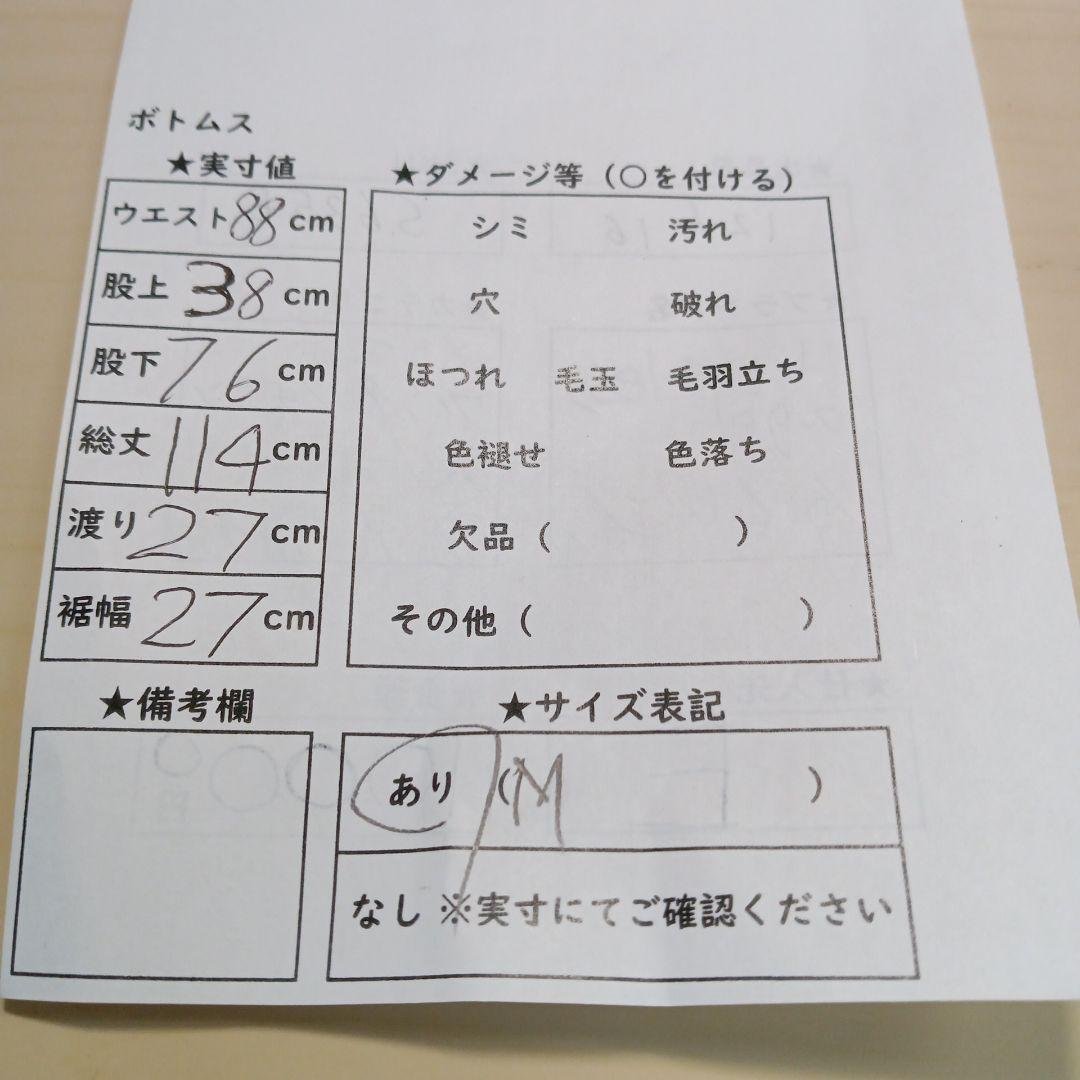 ボトムス
★実寸値
ウエスト88cm
股上38cm
股下76cm
総丈114cm
渡り27cm
裾幅27cm
★ダメージ等(○を付ける)
シミ 汚れ
穴 破れ
ほつれ 毛玉 毛羽立ち
色褪せ 色落ち
欠品( )
その他( )
★備考欄
★サイズ表記
あり (M )
なし ※実寸にてご確認ください